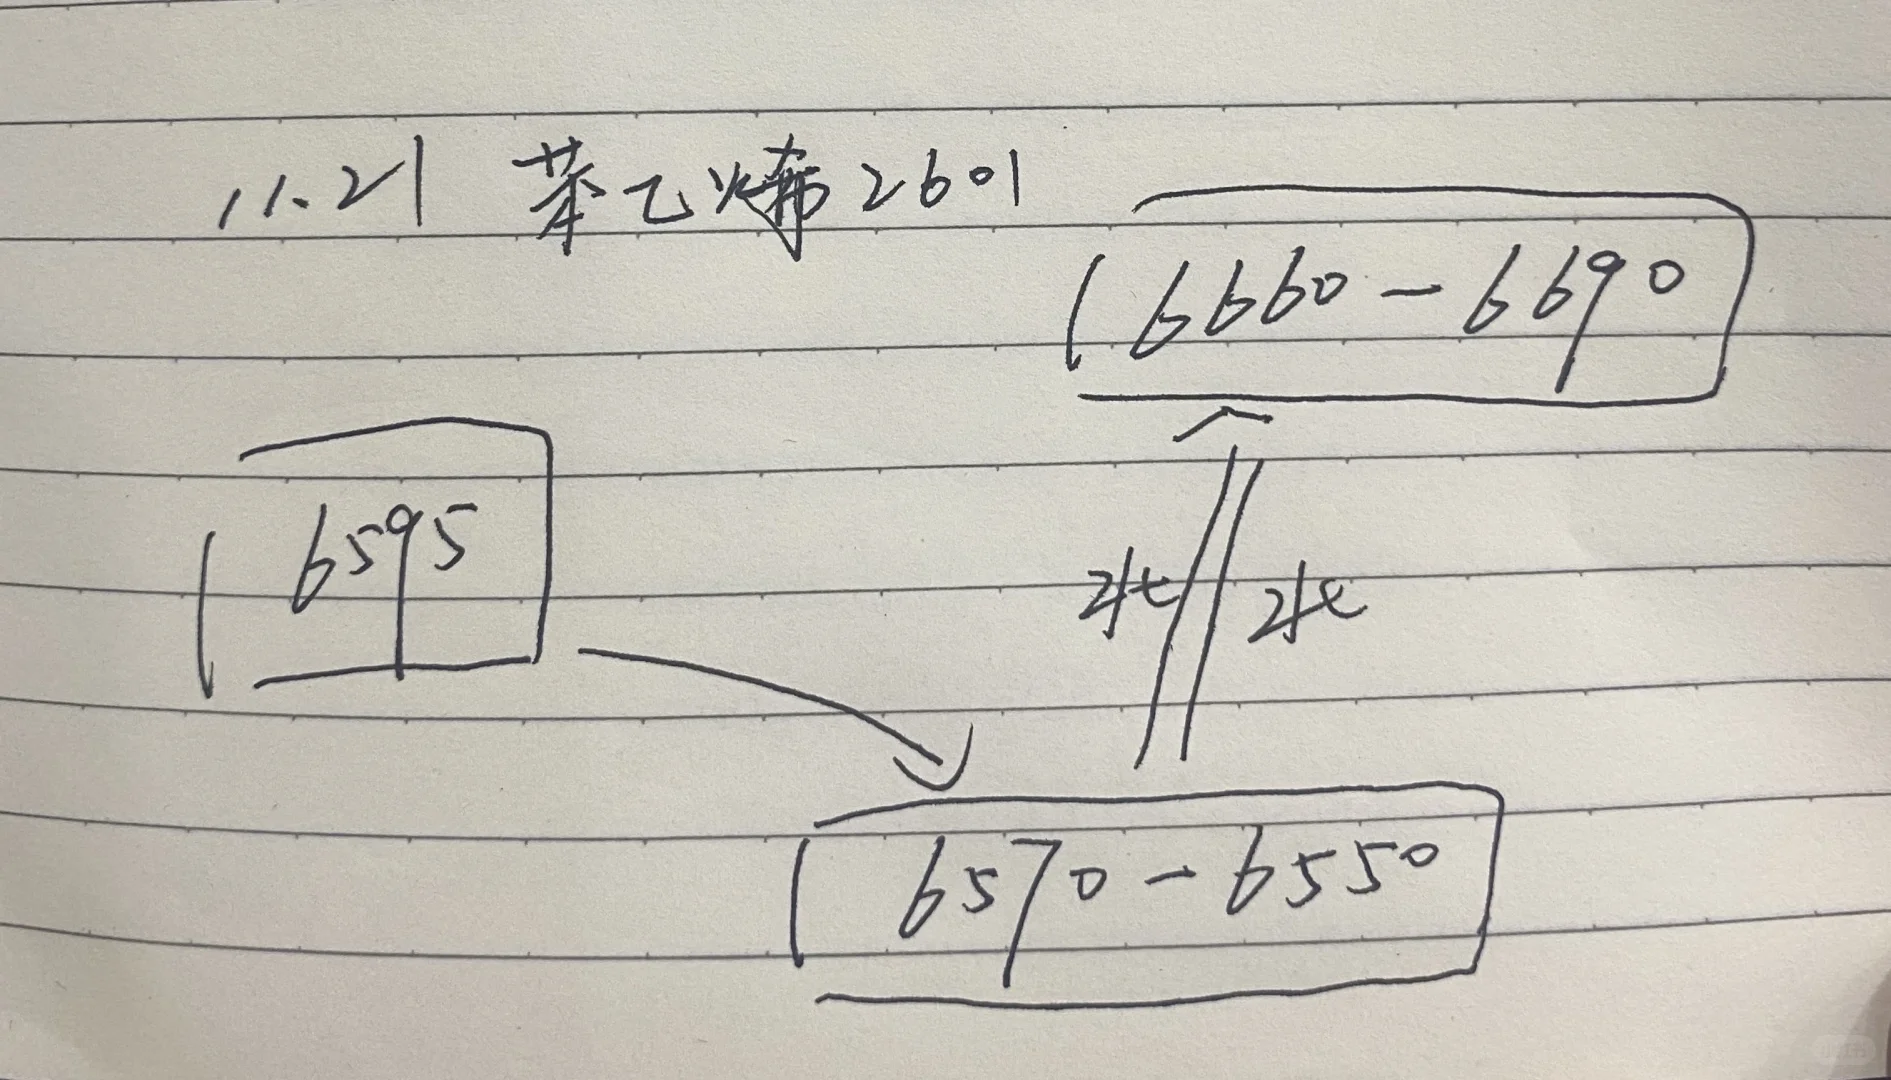 11.21 苯乙烯2601
6660-6690
6595
6570-6550